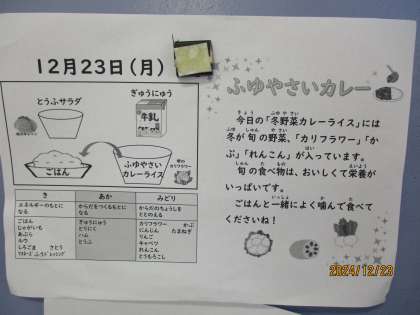 12月23日(月)
とうふサラダ
ぎゅうにゅう
牛乳
旬のカリフラワー
ごはん
ふゆやさいカレーライス
き
あか
みどり
エネルギーのもとになる
からだをつくるもとになる
からだのちょうしをととのえる
ごはん
じゃがいも
あぶら
ルウ
しろごま さとう
ぎゅうにゅう
とりにく
ハム
とうふ
カリフラワー かぶ
にんじん たまねぎ
りんご
キャベツ
れんこん
とうもろこし
ふゆやさいカレー
今日の「冬野菜カレーライス」には
冬が旬の野菜、「カリフラワー」「か
ぶ」「れんこん」が入っています。
旬の食べ物は、おいしくて栄養が
いっぱいです。
ごはんと一緒によく噛んで食べて
くださいね!
2024/12/23